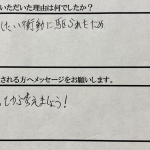 いただいた理由は何でしたか？
したい衝動に駆られたため
される方へメッセージをお願いします。
してから考えましょう！